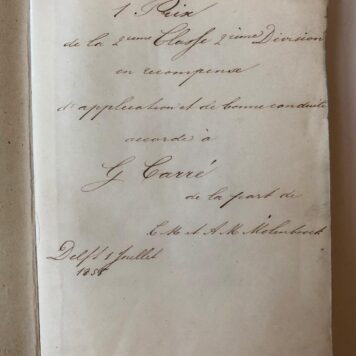 1 Prix
de la 2ieme Classe 2ieme Division
en recompense
d'application et de bonne conduite
accordé à
G Carré
de la part de
C M et A M Molenbroek
Delft 1 Juillet
1858